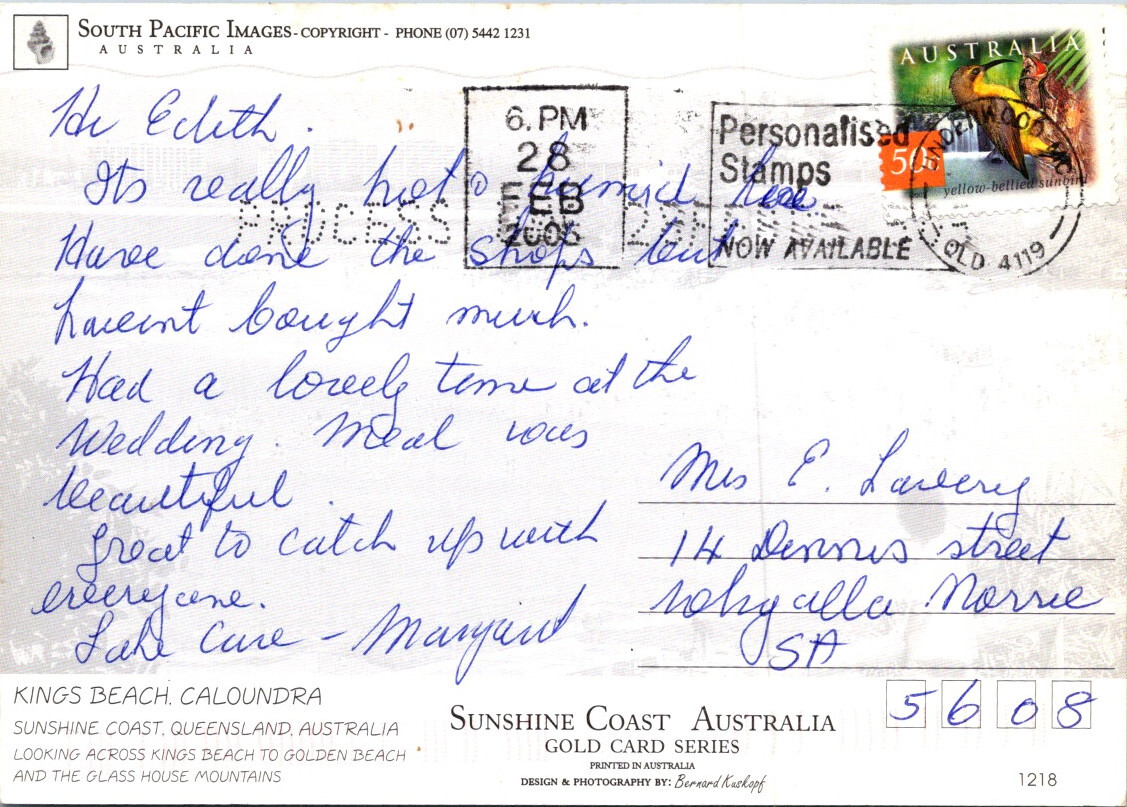 SOUTH PACIFIC IMAGES - COPYRIGHT - PHONE (07) 5442 1231
AUSTRALIA
AUSTRALIA
50c
yellow-bellied sunbird
6. PM
28
FEB
2005
Personalised
Stamps
NOW AVAILABLE
UNDERWOOD MC
QLD 4119
Hi Edith.
Its really hot & humid here
Have done the shops but
havent bought much.
Had a lovely time at the
Wedding. Meal was
beautiful.
Great to catch up with
everyone.
Take Care - Margaret
Mrs E. Lavery
14 Dennis street
Whyalla Norrie
SA
5608
KINGS BEACH, CALOUNDRA
SUNSHINE COAST, QUEENSLAND, AUSTRALIA
LOOKING ACROSS KINGS BEACH TO GOLDEN BEACH
AND THE GLASS HOUSE MOUNTAINS
SUNSHINE COAST AUSTRALIA
GOLD CARD SERIES
PRINTED IN AUSTRALIA
DESIGN & PHOTOGRAPHY BY: Bernard Kuskopf
1218